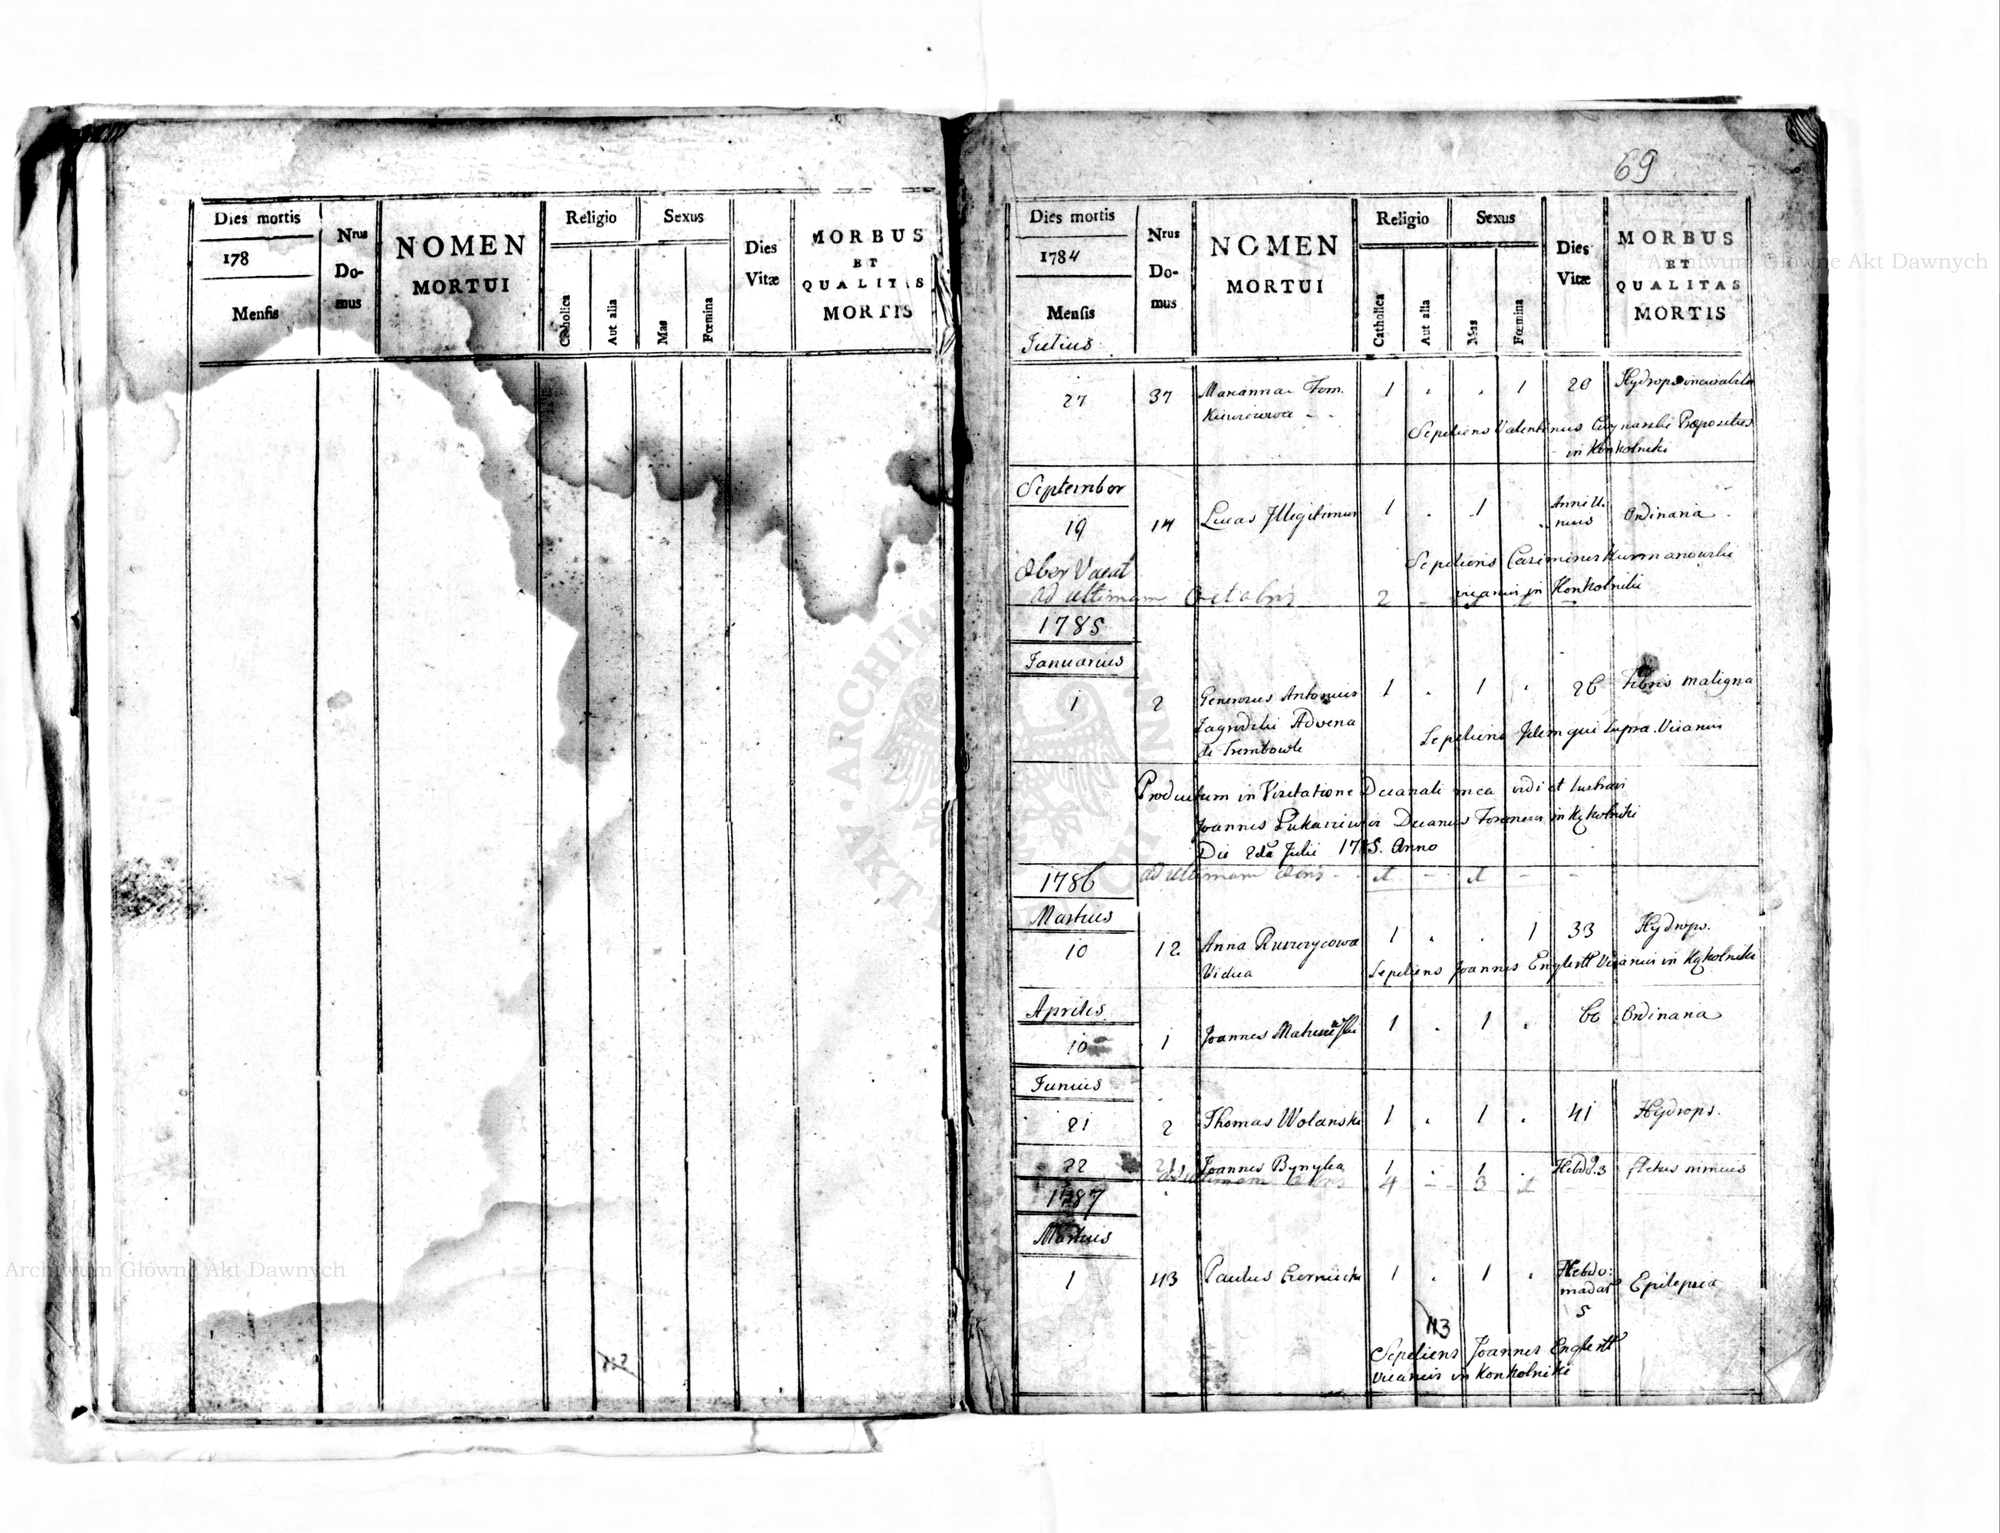 Dies mortis
178
Mensis
Nrus
Do-
mus
NOMEN
MORTUI
Religio
Catholica
Aut alia
Sexus
Mas
Fœmina
Dies
Vitæ
MORBUS
ET
QUALITAS
MORTIS
69
Dies mortis
1784
Mensis
Julius
Nrus
Do-
mus
NOMEN
MORTUI
Religio
Catholica
Aut alia
Sexus
Mas
Fœmina
Dies
Vitæ
MORBUS
ET
QUALITAS
MORTIS
27 37 Marianna Tom- 1 . . 1 20 Hydrops incurabilis
Sepeliens Valentinus Præpositus
in Konkolniki
September
19 14 Lucas Illegitimus 1 . 1 . Anni U- Ordinaria
nius
Sepeliens Casimirus Kurmanowski
8ber Vacat vicarius in Konkolniki
ad ultimam Octobris 2
1785
Januarius
1 2 Generosus Antonius 1 . 1 . 26 Febris maligna
Jagodzki Advena
de Trembowle
Sepeliens Idem qui supra Vicarius
Productum in Visitatione Decanali mea vidi et lustravi
Joannes Decanus in Kąkolniki
Die 2da Julii 1785. Anno
1786 ad ultimam 8bris - 1 - 1 - -
Martius
10 12 Anna 1 . . 1 33 Hydrops.
Vidua Sepeliens Joannes Englertt Vicarius in Kąkolniki
Aprilis
10 1 Joannes 1 . 1 . 66 Ordinaria
Junius
21 2 Thomas Wolanski 1 . 1 . 41 Hydrops.
22 21 Joannes Bynyka 1 . 1 . Hebd. 3 fletus nimius
ad ultimam 8bris 4 - 3 1
1787
Martius
1 43 Paulus Czerniecki 1 . 1 . Hebdo: Epilepsia
madar
5
113
Sepeliens Joannes Englertt
vicarius in Konkolniki
113
Archiwum Główne Akt Dawnych
Archiwum Główne Akt Dawnych